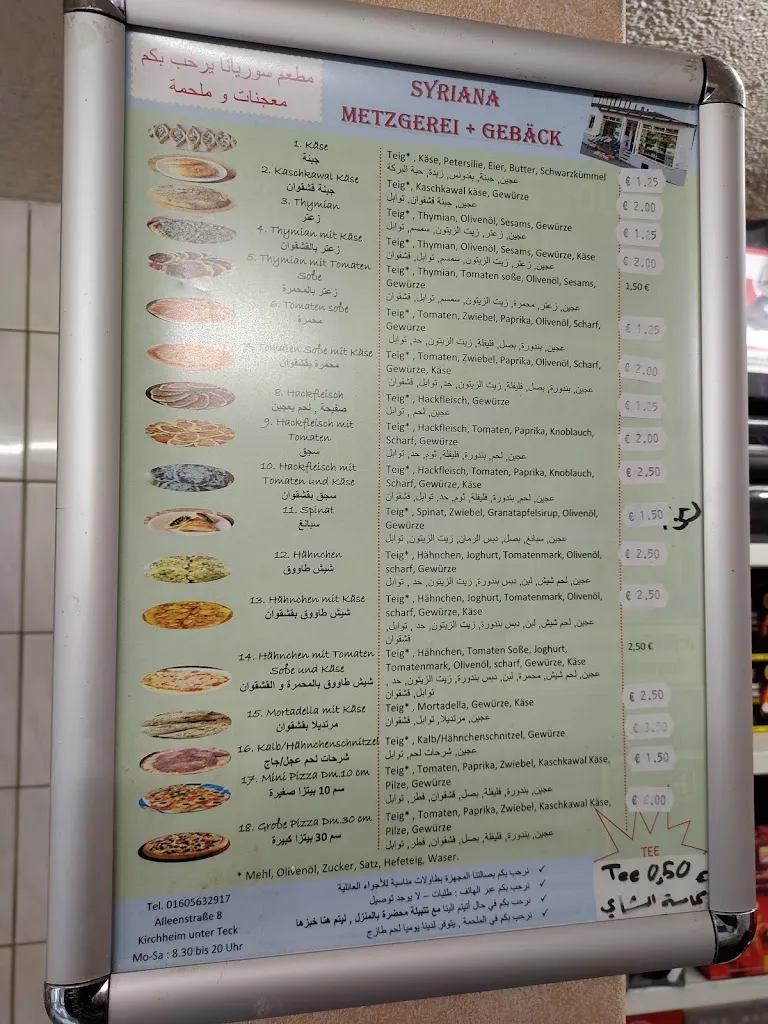 مطعم سوريانا يرحب بكم
معجنات و ملحمة
SYRIANA
METZGEREI + GEBÄCK
1. Käse
جبنة
Teig* , Käse, Petersilie, Eier, Butter, Schwarzkümmel
عجين, جبنة, بقدونس, زبدة, حبة البركة
€ 1.25
2. Kaschkawal Käse
جبنة قشقوان
Teig*, Kaschkawal käse, Gewürze
عجين, جبنة قشقوان, توابل
€ 2.00
3. Thymian
زعتر
Teig* , Thymian, Olivenöl, Sesams, Gewürze
عجين, زعتر, زيت الزيتون, سمسم, توابل
€ 1.25
4. Thymian mit Käse
زعتر بالقشقوان
Teig* , Thymian, Olivenöl, Sesams, Gewürze, Käse
عجين, زعتر, زيت الزيتون, سمسم, توابل, قشقوان
€ 2.00
5. Thymian mit Tomaten
Soße
زعتر بالمحمرة
Teig* , Thymian, Tomaten soße, Olivenöl, Sesams,
Gewürze
عجين, زعتر, محمرة, زيت الزيتون, سمسم, توابل, قشقوان
1,50 €
6. Tomaten soße
محمرة
Teig* , Tomaten, Zwiebel, Paprika, Olivenöl, Scharf,
Gewürze
عجين, بندورة, بصل, فليفلة, زيت الزيتون, حد, توابل
€ 1.25
7. Tomaten Soße mit Käse
محمرة بقشقوان
Teig* , Tomaten, Zwiebel, Paprika, Olivenöl, Scharf,
Gewürze, Käse
عجين, بندورة, بصل, فليفلة, زيت الزيتون, حد, توابل, قشقوان
€ 2.00
8. Hackfleisch
صفيحة , لحم بعجين
Teig* , Hackfleisch, Gewürze
عجين, لحم , توابل
€ 1.25
9. Hackfleisch mit
Tomaten
سجق
Teig* , Hackfleisch, Tomaten, Paprika, Knoblauch,
Scharf, Gewürze
عجين, لحم, بندورة, فليفلة, ثوم, حد, توابل
€ 2,00
10. Hackfleisch mit
Tomaten und Käse
سجق بقشقوان
Teig* , Hackfleisch, Tomaten, Paprika, Knoblauch,
Scharf, Gewürze, Käse
عجين, لحم, بندورة, فليفلة, ثوم, حد, توابل, قشقوان
€ 2,50
11. Spinat
سبانغ
Teig* , Spinat, Zwiebel, Granatapfelsirup, Olivenöl,
Gewürze
عجين, سبانغ, بصل, دبس الرمان, زيت الزيتون, توابل
€ 1.50
12. Hähnchen
شيش طاووق
Teig* , Hähnchen, Joghurt, Tomatenmark, Olivenöl,
scharf, Gewürze
عجين, لحم شيش, لبن, دبس بندورة, زيت الزيتون, حد , توابل
€ 2,50
13. Hähnchen mit Käse
شيش طاووق بقشقوان
Teig* , Hähnchen, Joghurt, Tomatenmark, Olivenöl,
scharf, Gewürze, Käse
عجين, لحم شيش, لبن, دبس بندورة, زيت الزيتون, حد , توابل,
قشقوان
€ 2,50
14. Hähnchen mit Tomaten
Soße und Käse
شيش طاووق بالمحمرة و القشقوان
Teig* , Hähnchen, Tomaten Soße, Joghurt,
Tomatenmark, Olivenöl, scharf, Gewürze, Käse
عجين, لحم شيش, محمرة, لبن, دبس بندورة, زيت الزيتون, حد ,
توابل, قشقوان
2,50 €
15. Mortadella mit Käse
مرتديلا بقشقوان
Teig* , Mortadella, Gewürze, Käse
عجين, مرتديلا, توابل, قشقوان
€ 2.50
16. Kalb/Hähnchenschnitzel
شرحات لحم عجل/جاج
Teig* , Kalb/Hähnchenschnitzel, Gewürze
عجين, شرحات لحم, توابل
17. Mini Pizza Dm.10 cm
سم 10 بيتزا صغيرة
Teig* , Tomaten, Paprika, Zwiebel, Kaschkawal Käse,
Pilze, Gewürze
عجين, بندورة, فليفلة, بصل, قشقوان, فطر, توابل
€ 1.50
18. Große Pizza Dm.30 cm
سم 30 بيتزا كبيرة
Teig* , Tomaten, Paprika, Zwiebel, Kaschkawal Käse,
Pilze, Gewürze
عجين, بندورة, فليفلة, بصل, قشقوان, فطر, توابل
* Mehl, Olivenöl, Zucker, Satz, Hefeteig, Waser.
TEE
Tee 0,50 €
كاسة الشاي
Tel. 01605632917
Alleenstraße 8
Kirchheim unter Teck
Mo-Sa : 8.30 bis 20 Uhr
✓ نرحب بكم بصالتنا المجهزة بطاولات مناسبة للأجواء العائلية
✓ نرحب بكم عبر الهاتف : طلبات – لا يوجد توصيل
✓ نرحب بكم في حال أتيتم الينا مع تتبيلة محضرة بالمنزل , ليتم هنا خبزها
✓ نرحب بكم في الملحمة , يتوفر لدينا يوميا لحم طازج